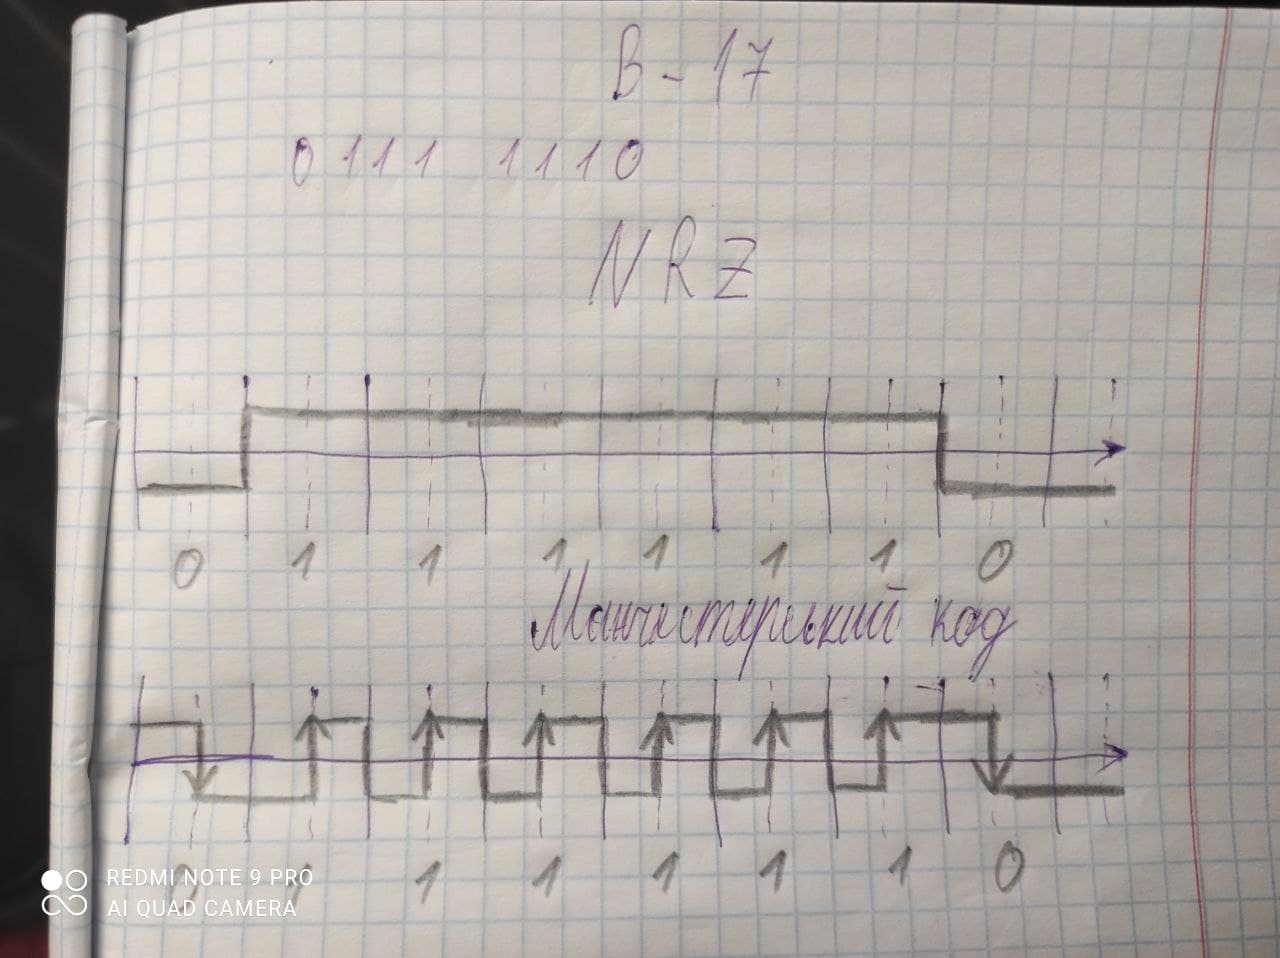 В-17
0111 1110
NRZ
0 1 1 1 1 1 1 0
Манчестерский код
0 1 1 1 1 1 1 0
REDMI NOTE 9 PRO
AI QUAD CAMERA